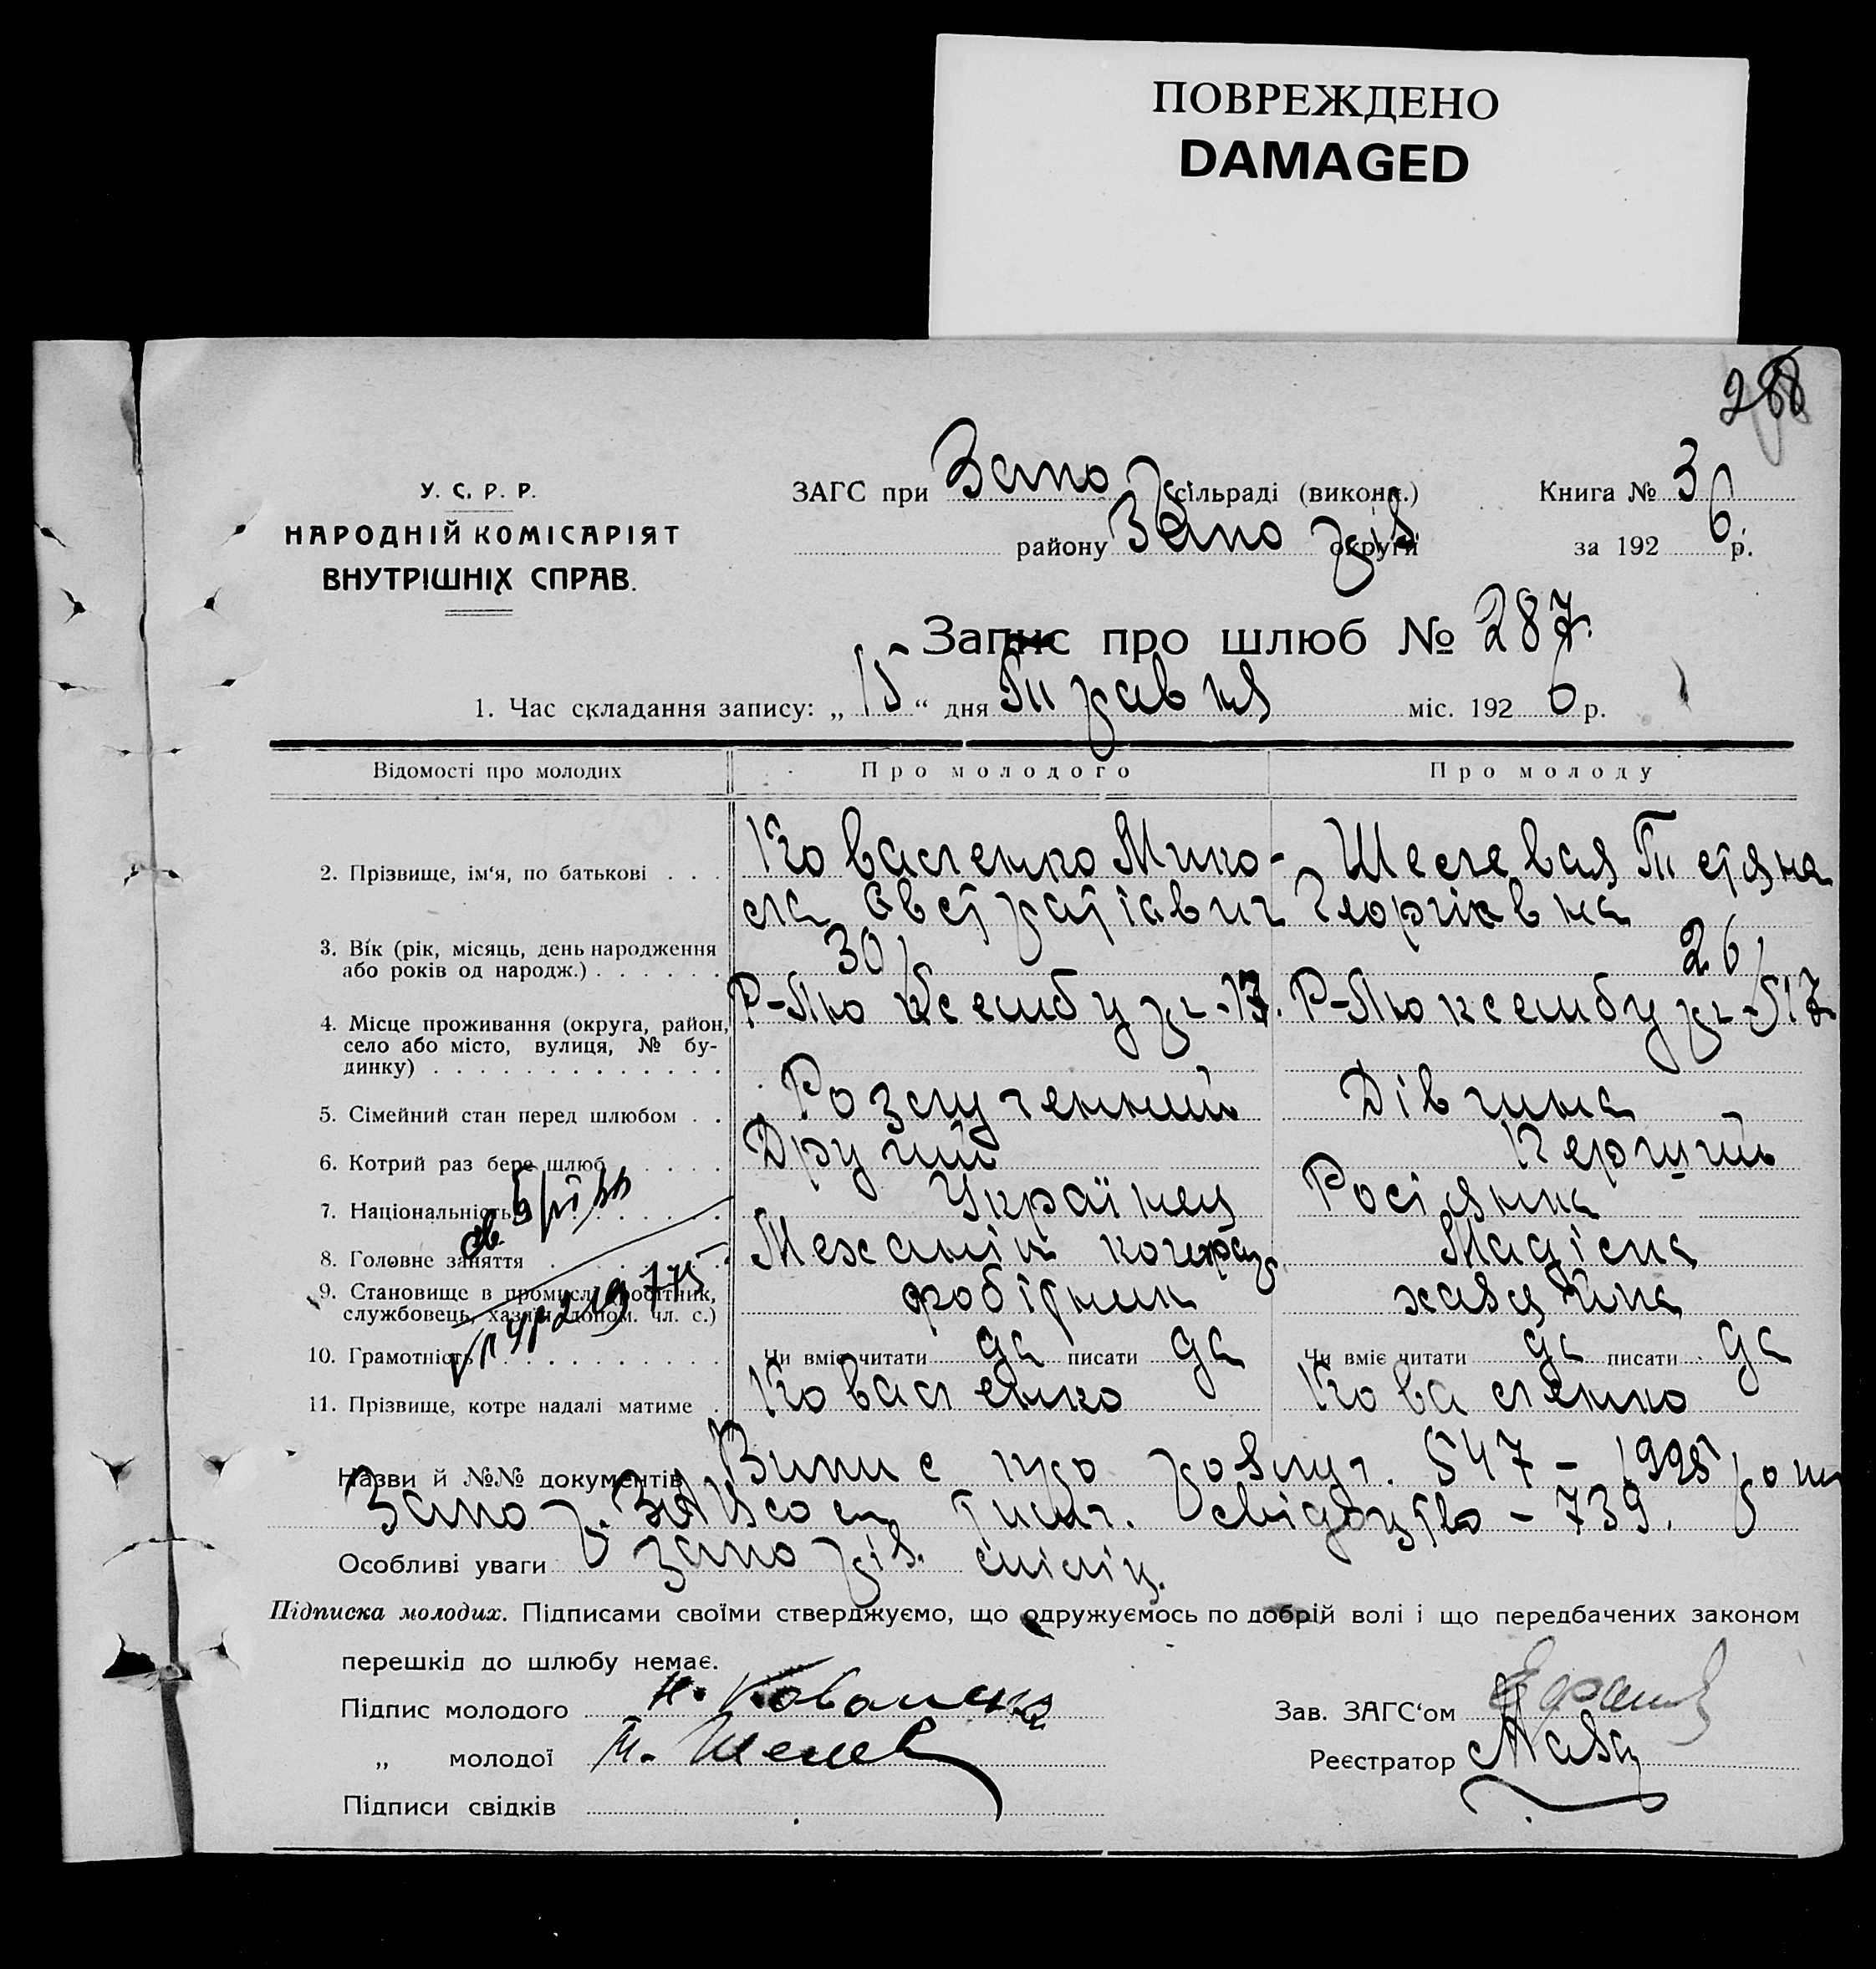 ПОВРЕЖДЕНО
DAMAGED
288
У. С. Р. Р.
НАРОДНІЙ КОМІСАРІЯТ
ВНУТРІШНІХ СПРАВ.
ЗАГС при Запор сільраді (викона.) Книга № 3
району Запоріз. округи за 192 6 р.
Запис про шлюб № 287.
1. Час складання запису: „ 15 “ дня Травня міс. 192 6 р.
Відомості про молодих Про молодого Про молоду
2. Прізвище, ім'я, по батькові . . . Коваленко Мико- Шелевая Тетяна
ла Австратіавич Георгіївна
3. Вік (рік, місяць, день народження
або років од народж.) . . . . . . 30 26
4. Місце проживання (округа, район, Р-Люксембург-17. Р-Люксембург-517
село або місто, вулиця, № бу-
динку) . . . . . . . . . . . . .
5. Сімейний стан перед шлюбом . . Розлученний Дівчина
6. Котрий раз бере шлюб . . . . Другий Першый
7. Національність . . . . . . Українец Росіянка
8. Головне заняття . . . . . . Механік
9. Становище в промислі (робітник, робітник хазяйка
службовець, хазяїн, допом. чл. с.)
10. Грамотність . . . . . . . . . . Чи вміє читати да писати да Чи вміє читати да писати да
11. Прізвище, котре надалі матиме . Коваленко Коваленко
Назви й №№ документів Випис про розлуч. 547 – 1925
Запор. ЗАГСом Свідоцтво – 739.
Особливі уваги Запоріз. міліц.
Підписка молодих. Підписами своїми стверджуємо, що одружуємось по добрій волі і що передбачених законом
перешкід до шлюбу немає.
Підпис молодого Н. Коваленко Зав. ЗАГС‘ом
„ молодої Т. Шелев Реєстратор
Підписи свідків